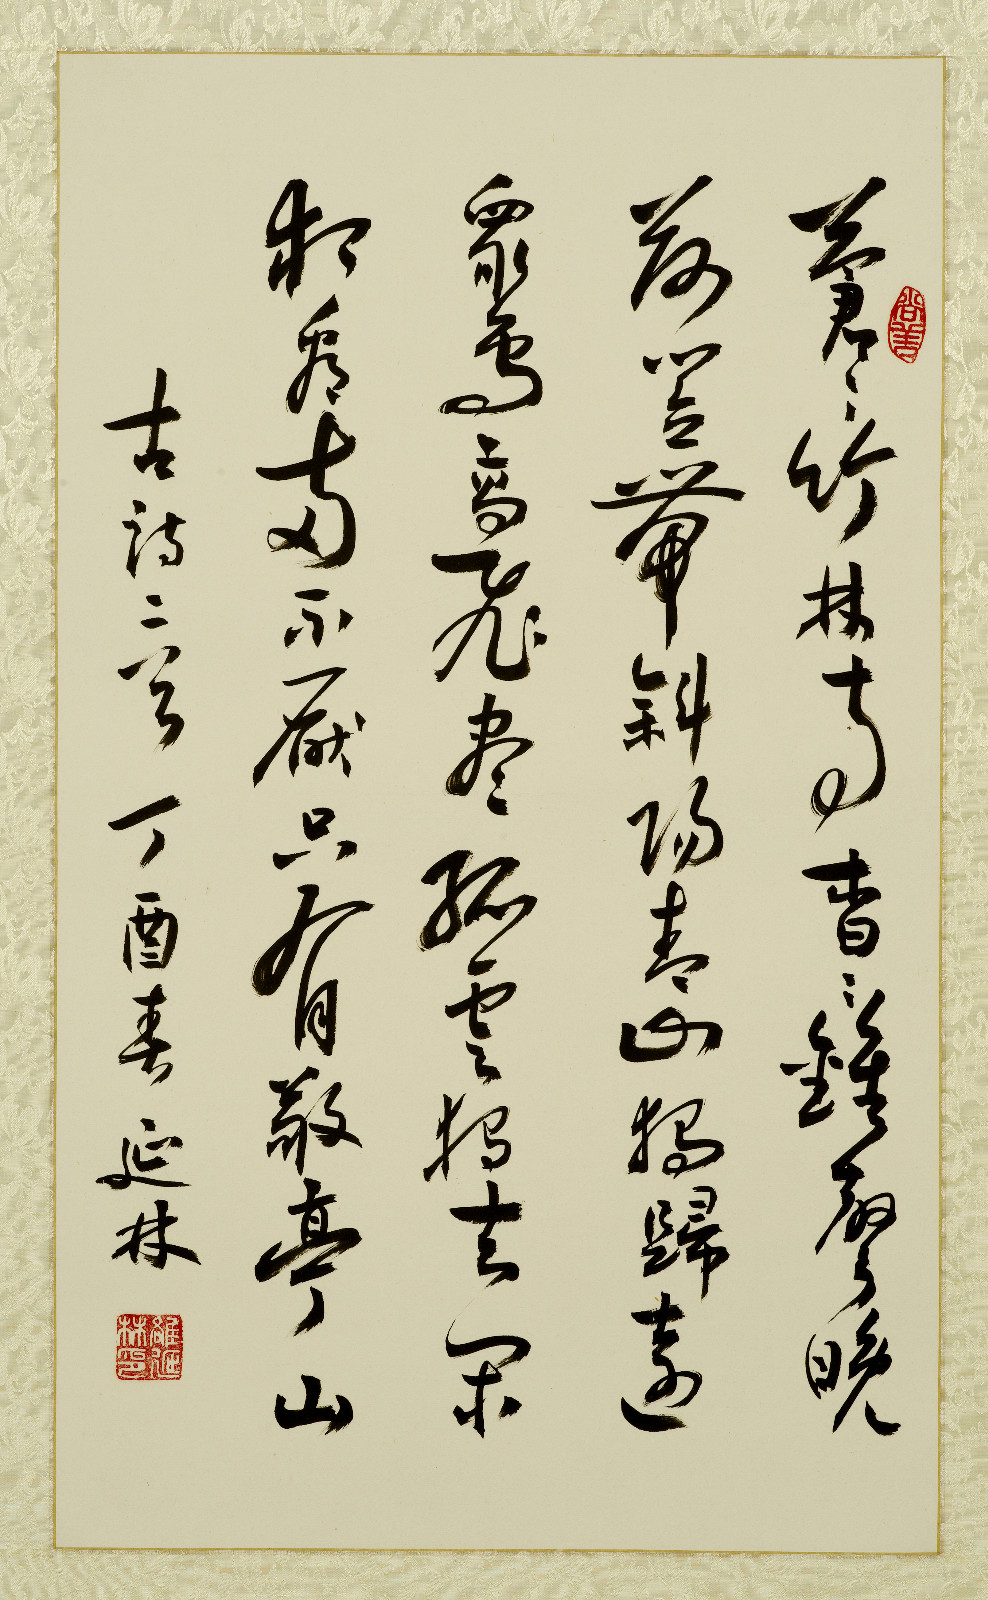 蒼〻竹林寺杳〻鐘聲晚
荷笠帶斜陽青山獨歸遠
眾鳥高飛盡孤雲獨去閑
相看兩不厭只有敬亭山
古詩二首 丁酉春 延林
尚美